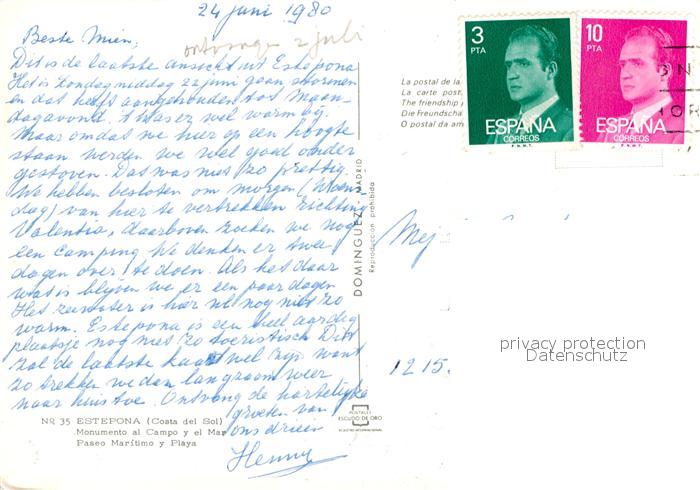 24 juni 1980
Beste Mien,
ontvangen 2 juli
Dit is de laatste ansicht uit Estepona
Het is Zondagmiddag 22 juni gaan stormen
en dat heeft aangehouden tot Maan-
dagavond. t Was er wel warm bij.
Maar omdat we hier op een hoogte
staan werden we wel goed onder
gestoven. Dat was niet zo prettig.
We hebben besloten om morgen (Woens-
dag) van hier te vertrekken richting
Valentia, daarboven zoeken we nog
een camping We denken er twee
dagen over te doen. Als het daar
wat is blijven we er een paar dagen
Het zeewater is hier wel nog niet zo
warm. Estepona is een heel aardig
plaatsje nog niet zo toeristisch Dit
zal de laatste kaart wel zijn want
zo trekken we dan langzaam weer
naar huis toe. Ontvang de hartelijke
groeten van
ons drieën
Henny
Nº 35 ESTEPONA (Costa del Sol)
Monumento al Campo y el Mar
Paseo Marítimo y Playa
DOMINGUEZ - MADRID
Reproducción prohibida
POSTALES
ESCUDO DE ORO
La postal de la
La carte post
The friendship
Die Freundscha
O postal da am
3
PTA
ESPAÑA
CORREOS
F.N.M.T.
10
PTA
ESPAÑA
CORREOS
F.N.M.T.
Mej
1215.
privacy protection
Datenschutz